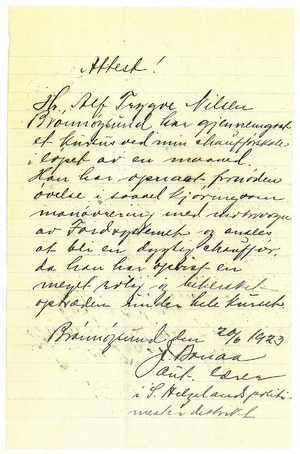 Attest!
Hr. Alf Trygve Nilsen
Brønnøysund har gjennemgaat
et kursus ved min chaufførskole
i løpet av en maaned.
Han har opnaat fornøden
øvelse i saavel kjøring som
manøvrering med motorvogn
av Fordsystemet og ansees
at bli en dygtig chauffør,
da han har utvist en
meget rolig og behersket
optræden under hele kurset.
Brønnøysund den 20/6 1923
J. Bonaa
aut. lærer
i S. Helgelands politi-
mesterdistrikt